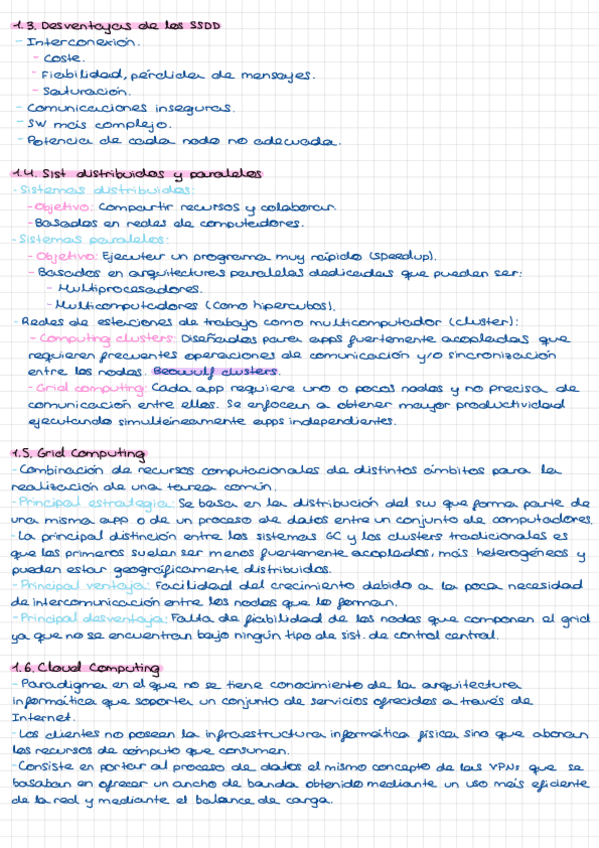 1.3. Desventajas de los SSDD
- Interconexión.
- Coste.
- Fiabilidad, pérdida de mensajes.
- Saturación.
- Comunicaciones inseguras.
- SW más complejo.
- Potencia de cada nodo no adecuada.
1.4. Sist distribuidos y paralelos
- Sistemas distribuidos:
- Objetivo: Compartir recursos y colaborar.
- Basados en redes de computadores.
- Sistemas paralelos:
- Objetivo: Ejecutar un programa muy rápido (speedup).
- Basados en arquitecturas paralelas dedicadas que pueden ser:
- Multiprocesadores.
- Multicomputadores (como hipercubos).
- Redes de estaciones de trabajo como multicomputador (cluster):
- Computing clusters: Diseñados para apps fuertemente acopladas que
requieren frecuentes operaciones de comunicación y/o sincronización
entre los nodos. Beowulf clusters.
- Grid computing: Cada app requiere uno o pocos nodos y no precisa de
comunicación entre ellos. Se enfocan a obtener mayor productividad
ejecutando simultáneamente apps independientes.
1.5. Grid Computing
- Combinación de recursos computacionales de distintos ámbitos para la
realización de una tarea común.
- Principal estrategia: Se basa en la distribución del sw que forma parte de
una misma app o de un proceso de datos entre un conjunto de computadores.
- La principal distinción entre los sistemas GC y los clusters tradicionales es
que los primeros suelen ser menos fuertemente acoplados, más heterogéneos y
pueden estar geográficamente distribuidos.
- Principal ventaja: Facilidad del crecimiento debido a la poca necesidad
de intercomunicación entre los nodos que lo forman.
- Principal desventaja: Falta de fiabilidad de los nodos que componen el grid
ya que no se encuentran bajo ningún tipo de sist. de control central.
1.6. Cloud Computing
- Paradigma en el que no se tiene conocimiento de la arquitectura
informática que soporta un conjunto de servicios ofrecidos a través de
Internet.
- Los clientes no poseen la infraestructura informática física sino que abonan
los recursos de cómputo que consumen.
- Consiste en portar al proceso de datos el mismo concepto de las VPNs que se
basaban en ofrecer un ancho de banda obtenido mediante un uso más eficiente
de la red y mediante el balance de carga.